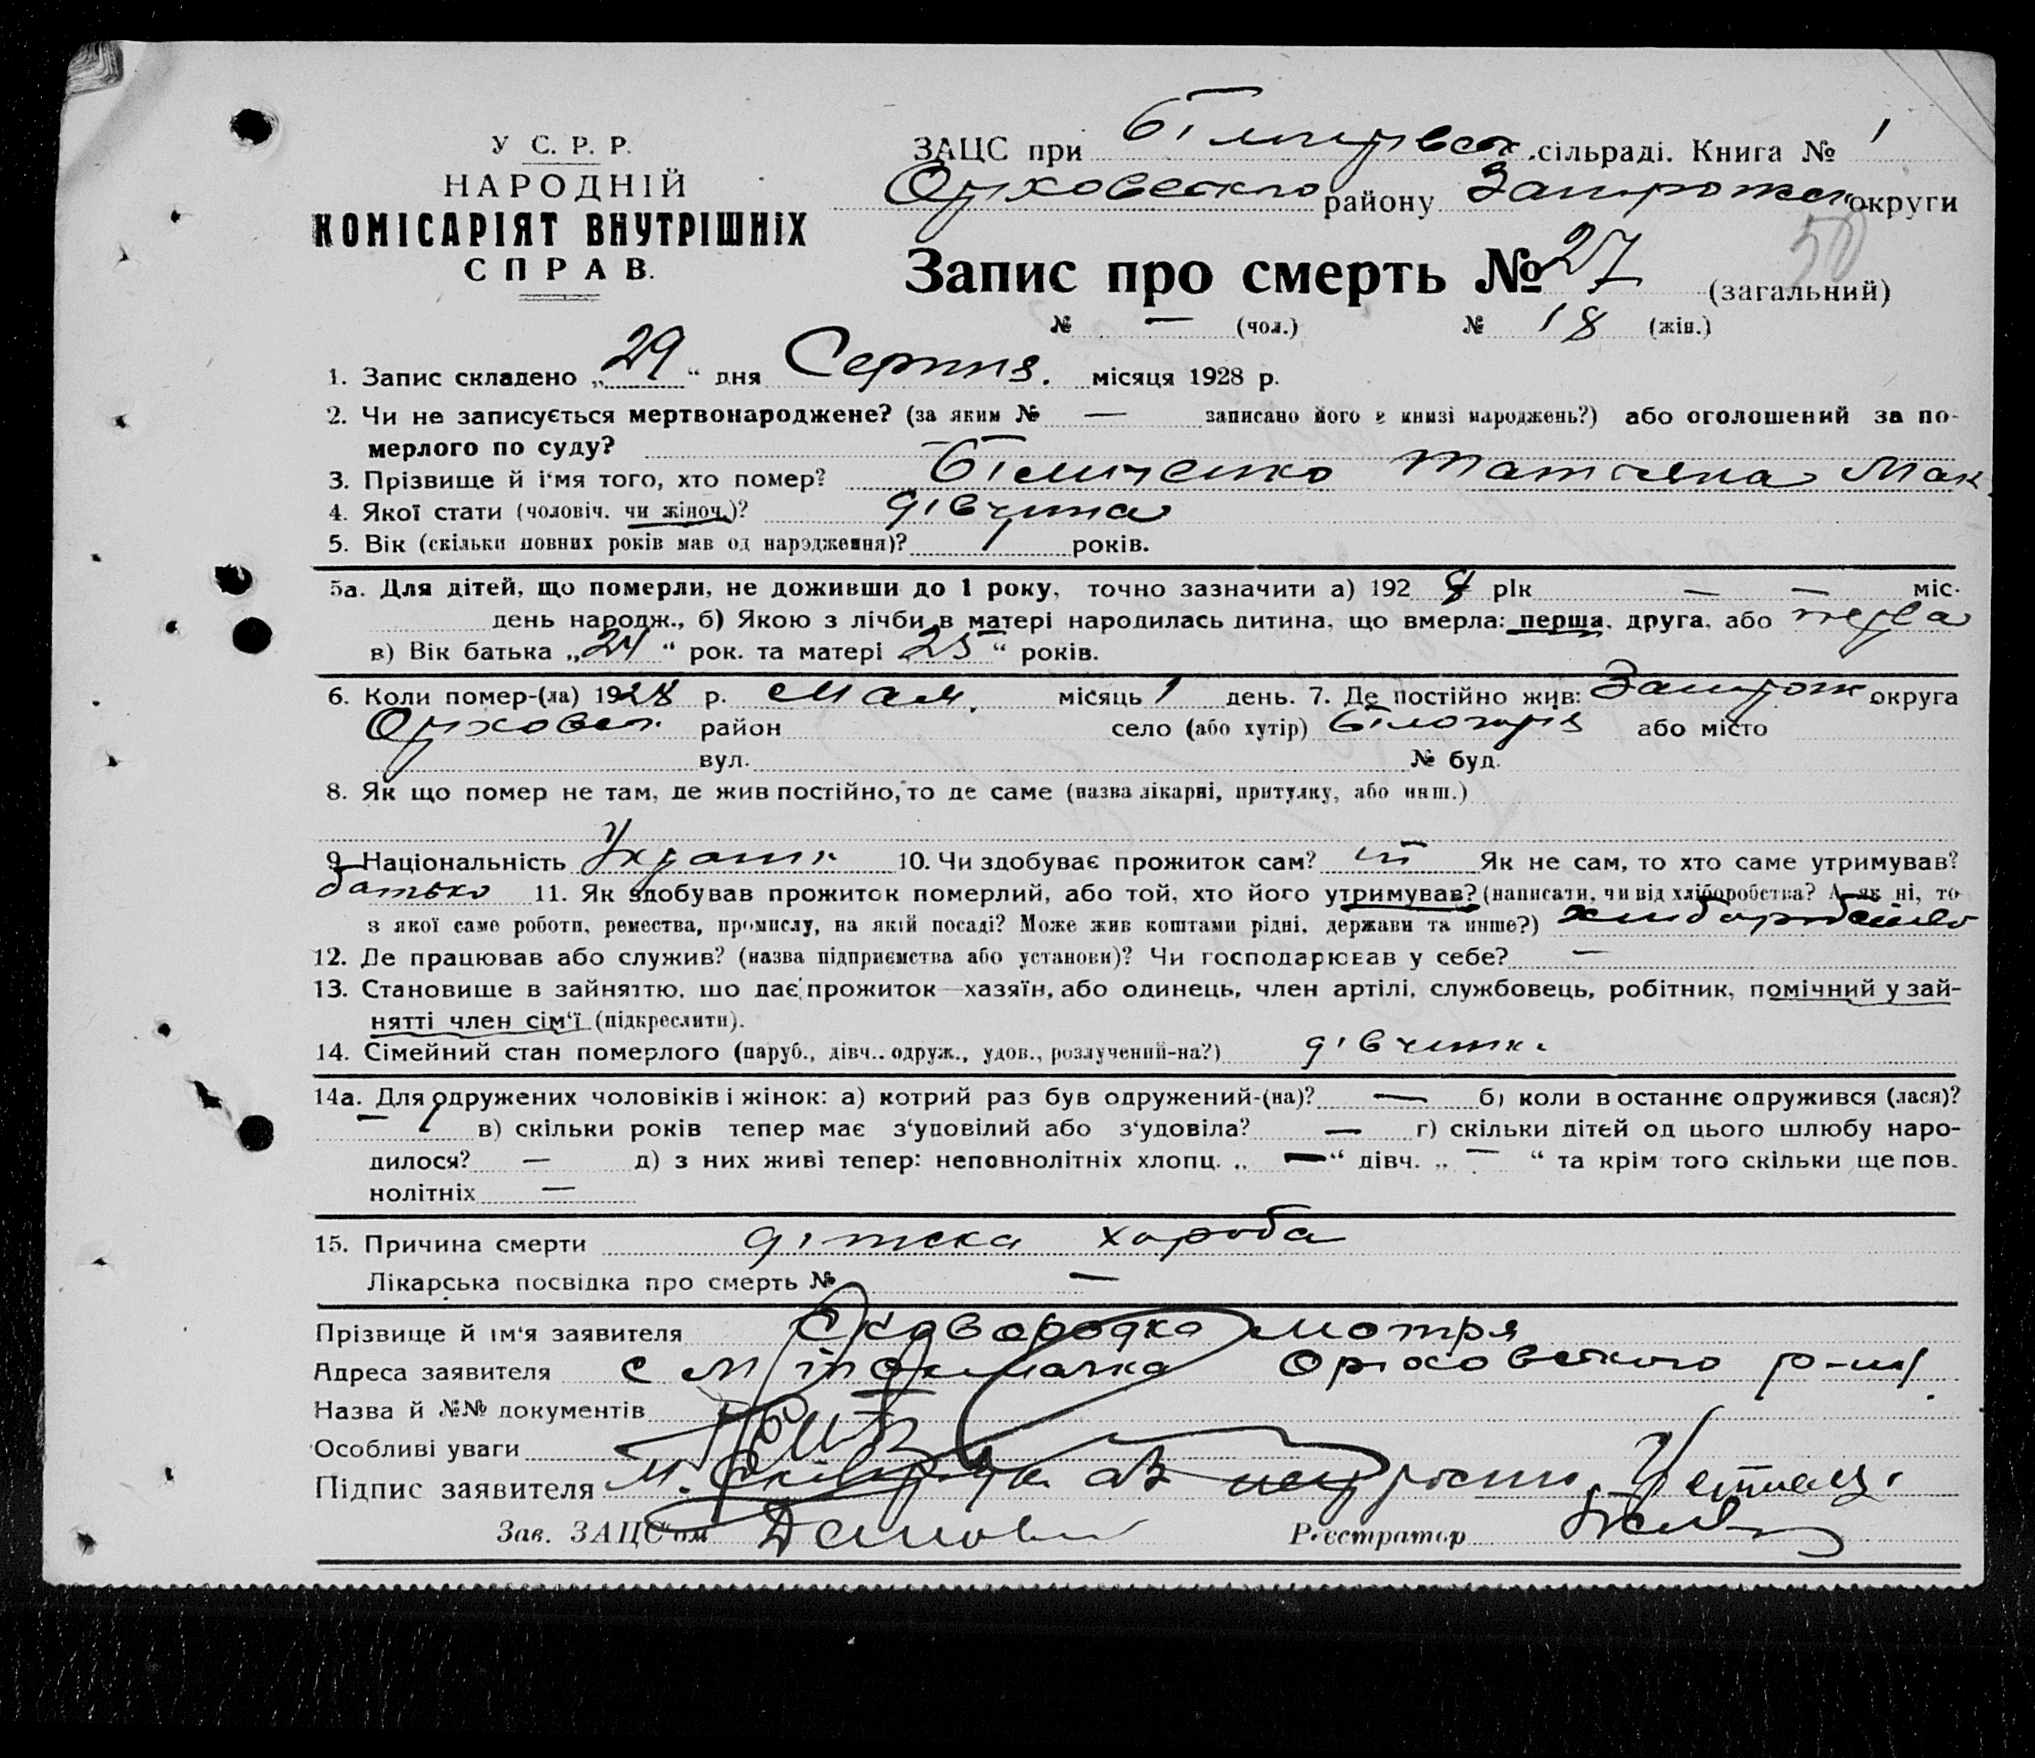 У С. Р. Р.
НАРОДНІЙ
КОМІСАРІЯТ ВНУТРІШНІХ
СПРАВ.
ЗАЦС при сільраді. Книга № 1
району округи
50
Запис про смерть № 27 (загальний)
№ — (чол.) № 18 (жін.)
1. Запис складено „29“ дня Серпня. місяця 1928 р.
2. Чи не записується мертвонароджене? (за яким № — записано його в книзі народжень?) або оголошений за по-
мерлого по суду?
3. Прізвище й і'мя того, хто помер? Татіяна Мак.
4. Якої стати (чоловіч. чи жіноч.)? дівчина
5. Вік (скільки повних років мав од народження)? 1 років.
5а. Для дітей, що померли, не доживши до 1 року, точно зазначити а) 192 рік — — міс.
день народж., б) Якою з лічби в матері народилась дитина, що вмерла: перша, друга, або перва
в) Вік батька „24“ рок. та матері „25“ років.
6. Коли помер-(ла) 1928 р. Мая. місяць 1 день. 7. Де постійно жив: Запорож округа
Оріховск. район село (або хутір) Білогорія або місто
вул. № буд.
8. Як що помер не там, де жив постійно, то де саме (назва лікарні, притулку, або инш.)
9. Національність 10. Чи здобуває прожиток сам? ні Як не сам, то хто саме утримував?
батько 11. Як здобував прожиток померлий, або той, хто його утримував? (написати, чи від хліборобства? А як ні, то
з якої саме роботи, ремества, промислу, на якій посаді? Може жив коштами рідні, держави та инше?) хліборобство
12. Де працював або служив? (назва підприємства або установи)? Чи господарював у себе? —
13. Становище в зайняттю, що дає прожиток—хазяїн, або одинець, член артілі, службовець, робітник, помічний у зай-
нятті член сім'ї (підкреслити).
14. Сімейний стан померлого (паруб., дівч., одруж., удов., розлучений-на?) дівчина
14а. Для одружених чоловіків і жінок: а) котрий раз був одружений-(на)? — б) коли в останнє одружився (лася)?
— в) скільки років тепер має з'уповілий або з'удовіла? — г) скільки дітей од цього шлюбу наро-
дилося? — д) з них живі тепер: неповнолітніх хлопц. „—“ дівч. „—“ та крім того скільки ще пов.
нолітніх —
15. Причина смерти дітска хороба
Лікарська посвідка про смерть № —
Прізвище й ім'я заявителя Сковородка Мотря
Адреса заявителя с Оріховского р-ну.
Назва й №№ документів
Особливі уваги
Підпис заявителя М.
Зав. ЗАЦС'ом
Реєстратор